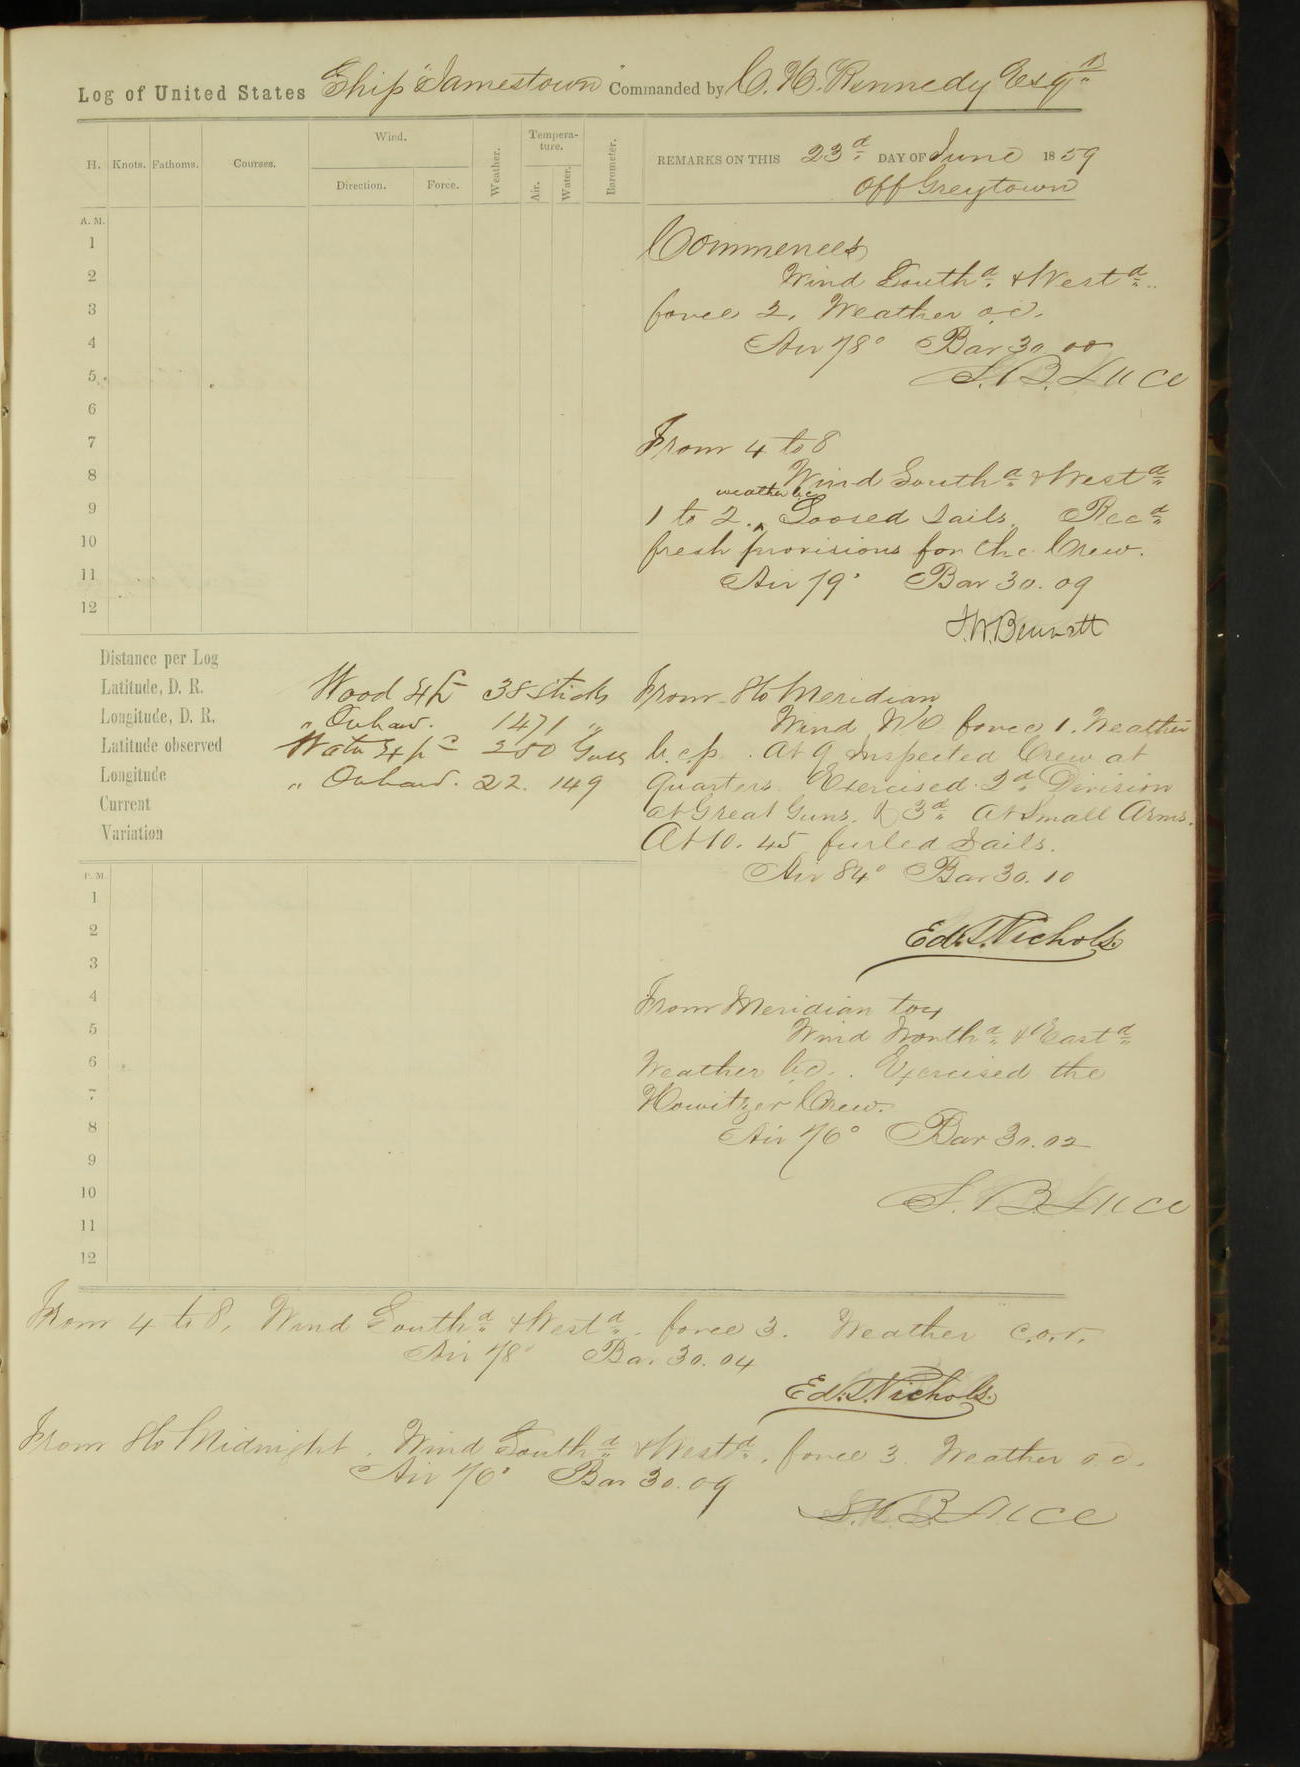 Log of United States Ship "Jamestown" Commanded by C. H. Kennedy Esqr
H. Knots. Fathoms. Courses. Wind. Direction. Force. Weather. Tempera-ture. Air. Water. Barometer.
REMARKS ON THIS 23d DAY OF June 1859
Off Greytown
A. M.
1
2
3
4
5
6
7
8
9
10
11
12
Commences
Wind Southd & Westd
force 2. Weather o.c.
Air 78° Bar 30.00
S. B. Luce
From 4 to 8
Wind Southd & Westd
weather b.c.
1 to 2. ^ Loosed Sails. Recd
fresh provisions for the Crew.
Air 79° Bar 30.09
Distance per Log
Latitude, D. R.
Longitude, D. R.
Latitude observed
Longitude
Current
Variation
Wood 38 sticks
" 1471 "
Water 250 Galls
" 22.149
From 8 to Meridian
Wind force 1. Weather
b.c.p. At 9 Inspected Crew at
Quarters. Exercised 2d Division
at Great Guns, & 3d at Small Arms.
At 10.45 furled Sails.
Air 84° Bar 30.10
Ed. T. Nichols.
From Meridian to 4
Wind Northd & Eastd
Weather b.c. Exercised the
Howitzer Crew.
Air 76° Bar 30.02
S. B. Luce
P. M.
1
2
3
4
5
6
7
8
9
10
11
12
From 4 to 8, Wind Southd & Westd. force 3. Weather c.o.r.
Air 78° Bar. 30.04
Ed. T. Nichols.
From 8 to Midnight. Wind Southd & Westd, force 3. Weather o.c.
Air 76° Bar 30.09
S. B. Luce